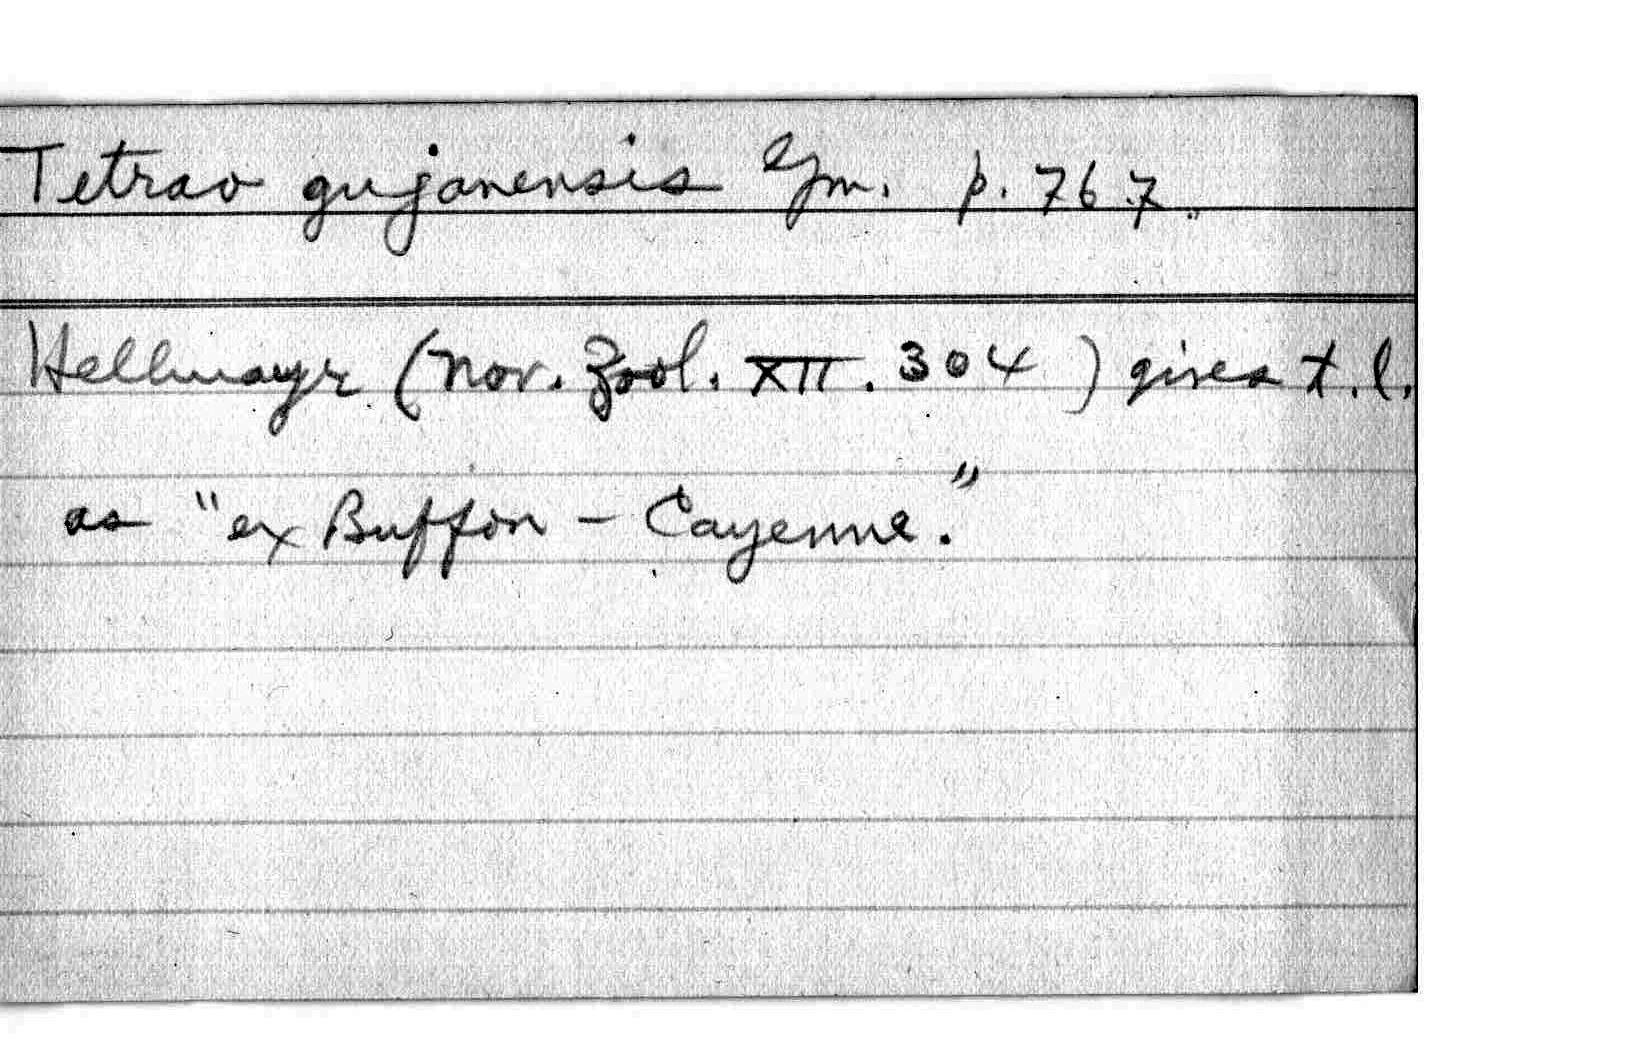 Tetrao gujanensis Gm. p. 767.
Hellmayr (Nov. Zool. XII. 304) gives t.l.
as "ex Buffon - Cayenne."